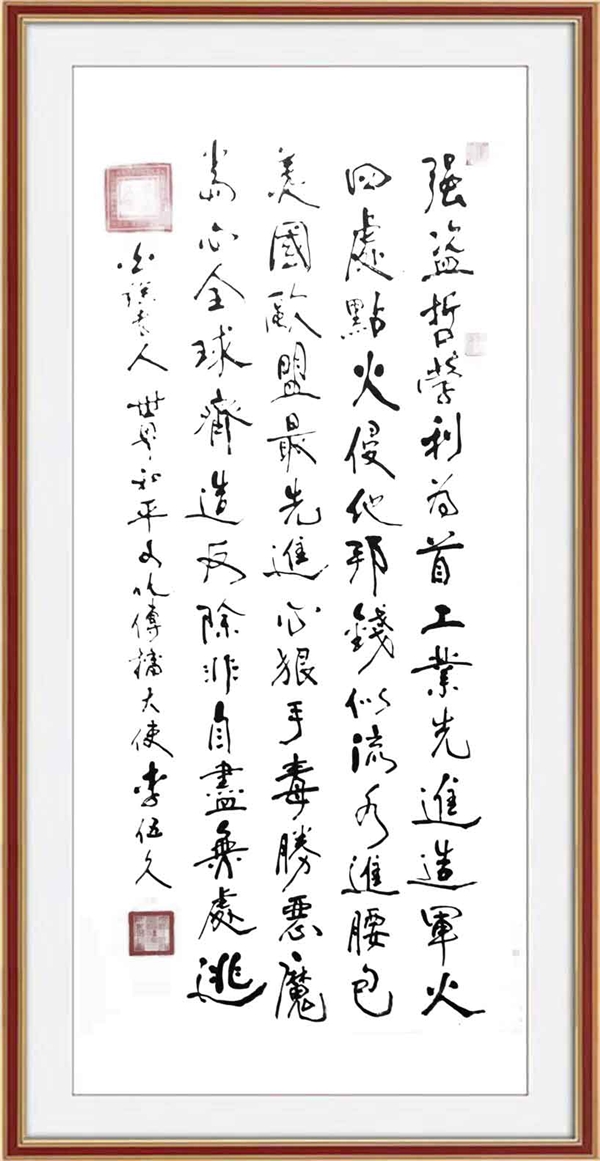 强盜哲學利為首工業先進造軍火
四處點火侵他邦錢似流水進腰包
美國歐盟最先進心狠手毒勝惡魔
當心全球齊造反除非自盡無處逃
老人世界和平文化傳播大使李伍久